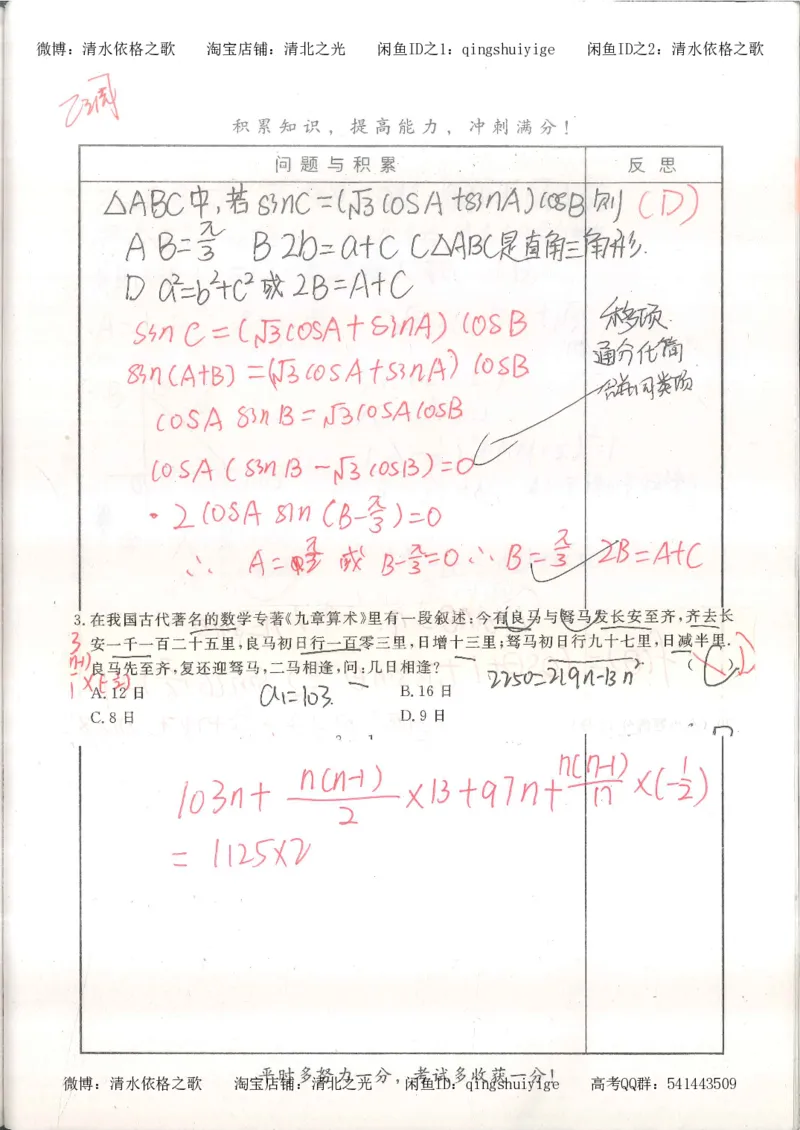 微博：清水依格之歌 淘宝店铺：清北之光 闲鱼ID之1：qingshuiyige 闲鱼ID之2：清水依格之歌
积累知识，提高能力，冲刺满分！
问题与积累 反思
△ABC中,若 sinC=(√3cosA+sinA)cosB 则 (D)
A B=π/3 B 2b=a+c C △ABC是直角三角形.
D a²=b²+c² 或 2B=A+C
sinC=(√3cosA+sinA)cosB
移项
sin(A+B)=(√3cosA+sinA)cosB
通分化简
合并同类项
cosA sinB=√3cosAcosB
cosA(sinB-√3cosB)=0
2cosA sin(B-π/3)=0
∴ A= 或 B-π/3=0 ∴ B=π/3 2B=A+C
3.在我国古代著名的数学专著《九章算术》里有一段叙述:今有良马与驽马发长安至齐,齐去长
安一千一百二十五里,良马初日行一百零三里,日增十三里;驽马初日行九十七里,日减半里.
良马先至齐,复还迎驽马,二马相逢,问:几日相逢? ( )
2250=219n-13n²
A.12日 a₁=103. B.16日
C.8日 D.9日
103n+n(n-1)/2×13+97n+n(n-1)/×(-1/2)
=1125×2
平时多努力一分，考试多收获一分！
微博：清水依格之歌 淘宝店铺：清北之光 闲鱼ID之1：qingshuiyige 高考QQ群：541443509